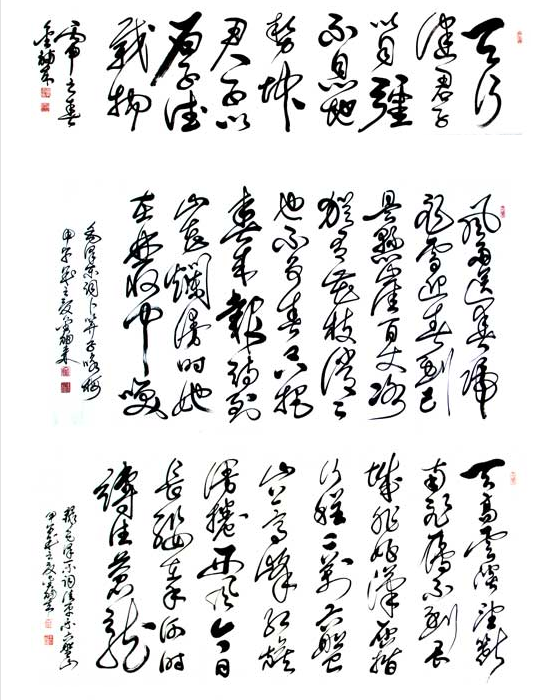 天行
健君子
以自彊
不息地
势坤
君子以
厚德
载物
风雨送春归
飞雪迎春到已
是悬崖百丈冰
犹有花枝俏〻
也不争春只把
春来报待到
山花烂漫时她
在丛中笑
毛泽东词卜算子咏梅
天高云淡望断
南飞雁不到长
城非好汉屈指
行程二万六盘
山上高峰红旗
漫卷西风今日
长缨在手何时
缚住苍龙
毛泽东词清平乐六盘山